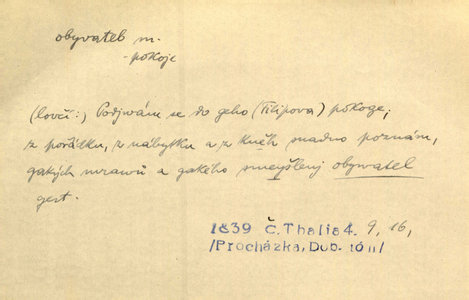 obyvatel m.
-pokoje
(lovčí:) Podjwám se do geho (Filipova) pokoge;
z pořádku, z nábytku a z kněh snadno poznám,
gakých mrawů a gakého smeyšlenj obywatel
gest.
1839 Č. Thalia 4. 9, 16,
/Procházka, Dob. tón/